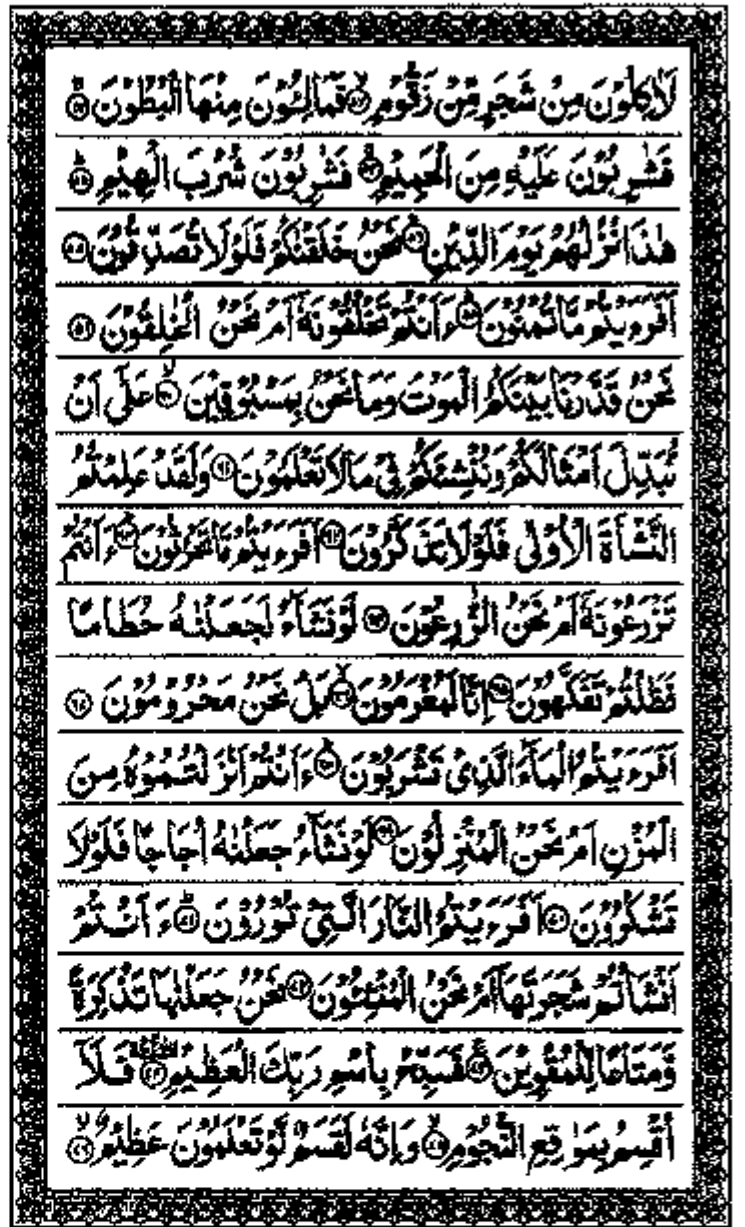 لَاٰكِلُوۡنَ مِنۡ شَجَرٍ مِّنۡ زَقُّوۡمٍۙ‏ ﴿۵۲﴾ فَمَالِـُٔـوۡنَ مِنۡهَا الۡبُطُوۡنَۚ‏ ﴿۵۳﴾
فَشٰرِبُوۡنَ عَلَيۡهِ مِنَ الۡحَمِيۡمِۚ‏ ﴿۵۴﴾ فَشٰرِبُوۡنَ شُرۡبَ الۡهِيۡمِؕ‏ ﴿۵۵﴾
هٰذَا نُزُلُهُمۡ يَوۡمَ الدِّيۡنِؕ‏ ﴿۵۶﴾ نَحۡنُ خَلَقۡنٰكُمۡ فَلَوۡلَا تُصَدِّقُوۡنَ‏ ﴿۵۷﴾
اَفَرَءَيۡتُمۡ مَّا تُمۡنُوۡنَؕ‏ ﴿۵۸﴾ ءَاَنۡتُمۡ تَخۡلُقُوۡنَهٗۤ اَمۡ نَحۡنُ الۡخٰلِقُوۡنَ‏ ﴿۵۹﴾
نَحۡنُ قَدَّرۡنَا بَيۡنَكُمُ الۡمَوۡتَ وَمَا نَحۡنُ بِمَسۡبُوۡقِيۡنَۙ‏ ﴿۶۰﴾ عَلٰٓى اَنۡ
نُّبَدِّلَ اَمۡثَالَكُمۡ وَنُنۡشِئَكُمۡ فِىۡ مَا لَا تَعۡلَمُوۡنَ‏ ﴿۶۱﴾ وَلَقَدۡ عَلِمۡتُمُ
النَّشۡاَةَ الۡاُوۡلٰى فَلَوۡلَا تَذَكَّرُوۡنَ‏ ﴿۶۲﴾ اَفَرَءَيۡتُمۡ مَّا تَحۡرُثُوۡنَؕ‏ ﴿۶۳﴾ ءَاَنۡتُمۡ
تَزۡرَعُوۡنَهٗۤ اَمۡ نَحۡنُ الزّٰرِعُوۡنَ‏ ﴿۶۴﴾ لَوۡ نَشَآءُ لَجَعَلۡنٰهُ حُطَامًا
فَظَلۡتُمۡ تَفَكَّهُوۡنَ‏ ﴿۶۵﴾ اِنَّا لَمُغۡرَمُوۡنَۙ‏ ﴿۶۶﴾ بَلۡ نَحۡنُ مَحۡرُوۡمُوۡنَ‏ ﴿۶۷﴾
اَفَرَءَيۡتُمُ الۡمَآءَ الَّذِىۡ تَشۡرَبُوۡنَؕ‏ ﴿۶۸﴾ ءَاَنۡتُمۡ اَنۡزَلۡتُمُوۡهُ مِنَ
الۡمُزۡنِ اَمۡ نَحۡنُ الۡمُنۡزِلُوۡنَ‏ ﴿۶۹﴾ لَوۡ نَشَآءُ جَعَلۡنٰهُ اُجَاجًا فَلَوۡلَا
تَشۡكُرُوۡنَ‏ ﴿۷۰﴾ اَفَرَءَيۡتُمُ النَّارَ الَّتِىۡ تُوۡرُوۡنَؕ‏ ﴿۷۱﴾ ءَاَنۡتُمۡ
اَنۡشَاۡتُمۡ شَجَرَتَهَاۤ اَمۡ نَحۡنُ الۡمُنۡشِـُٔوۡنَ‏ ﴿۷۲﴾ نَحۡنُ جَعَلۡنٰهَا تَذۡكِرَةً
وَّمَتَاعًا لِّلۡمُقۡوِيۡنَۚ‏ ﴿۷۳﴾ فَسَبِّحۡ بِاسۡمِ رَبِّكَ الۡعَظِيۡمِ‏ ﴿۷۴﴾ فَلَاۤ
اُقۡسِمُ بِمَوٰقِعِ النُّجُوۡمِۙ‏ ﴿۷۵﴾ وَاِنَّهٗ لَقَسَمٌ لَّوۡ تَعۡلَمُوۡنَ عَظِيۡمٌۙ‏ ﴿۷۶﴾